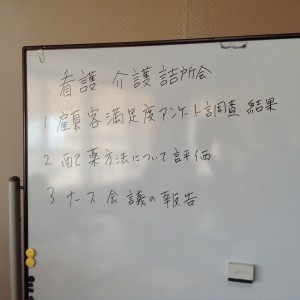 看護 介護詰所会
1 顧客満足度アンケート調査 結果
2 配薬方法について評価
3 ナース会議の報告